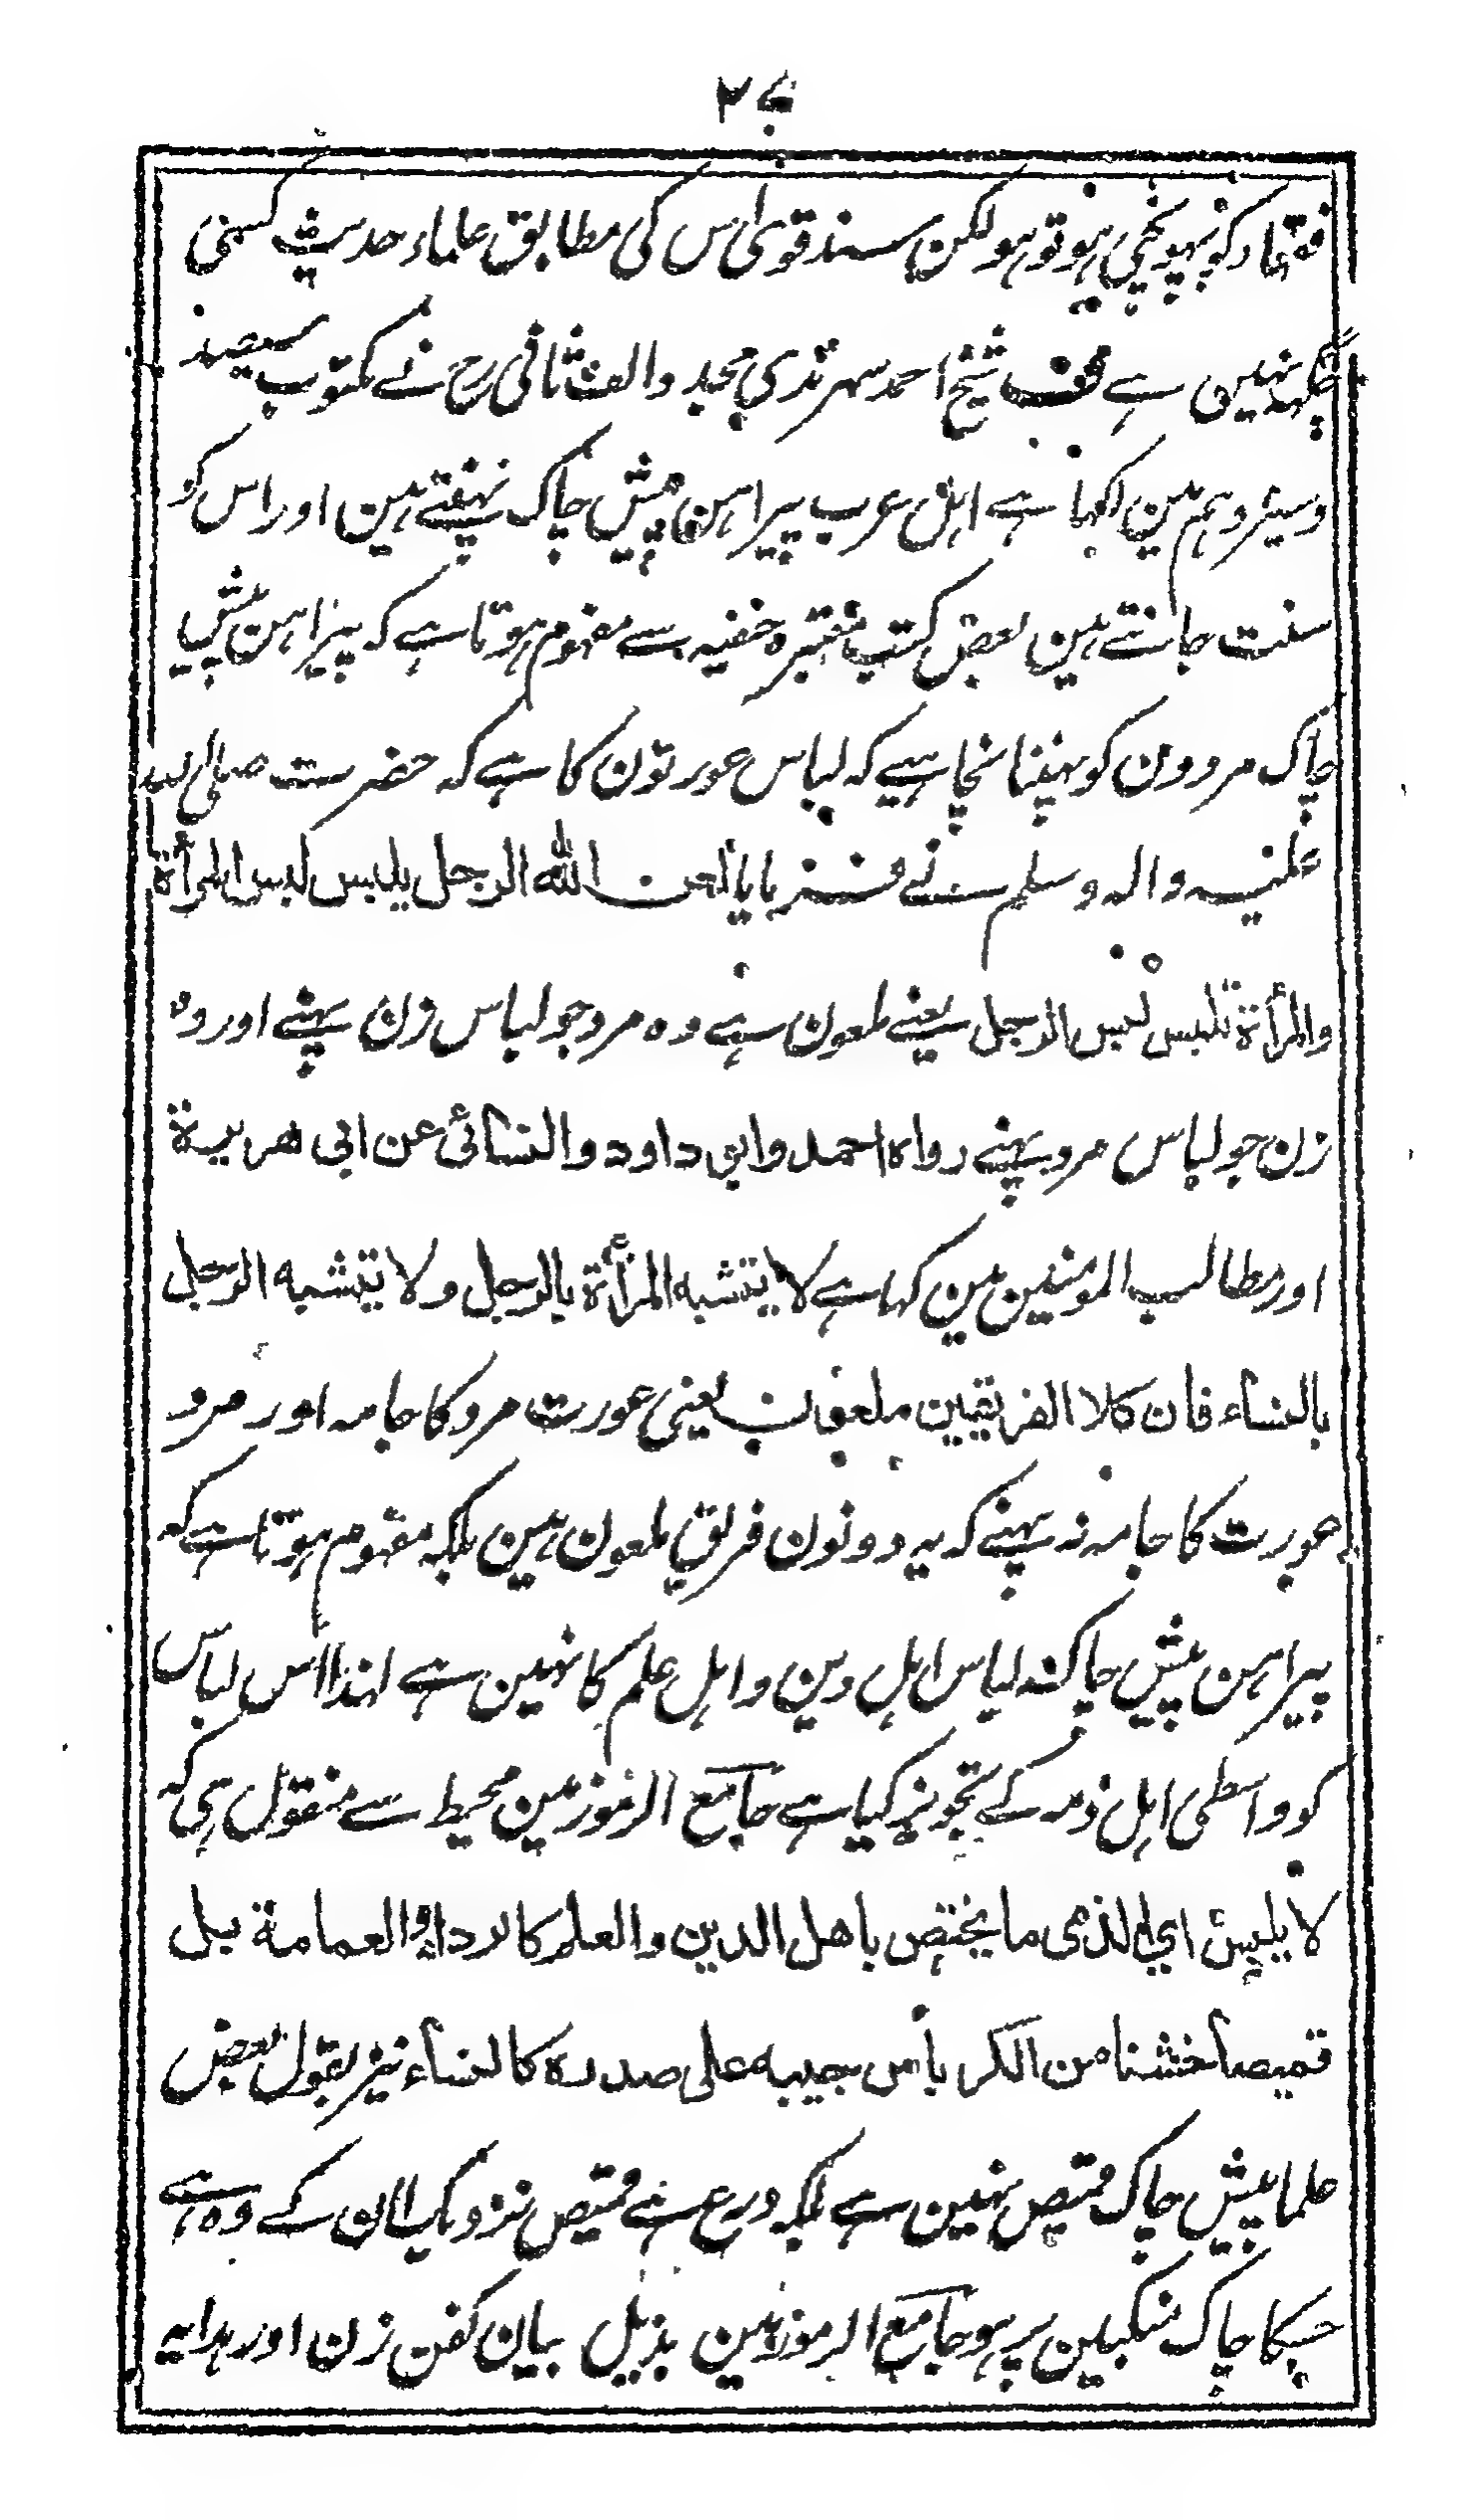 ٢٧
فقہاء کو نہ پہونچی ہو تو ہو لکن سند قوی اس کی مطابق علماء حدیث کسنی
جگہ نہیں ہے ف شیخ احمد سہرندی مجدد الف ثانی رح نے مکتوب سیصد
وسیزدہم مین لکہا ہے اہل عرب پیراہن پیش چاک پہنتے ہین اور اس کو
سنت جانتے ہین بعض کتب معتبرہ حنفیہ سے مفہوم ہوتا ہے کہ پیراہن پیش
چاک مردون کو پہننا نچاہیے کہ لباس عورتون کا ہے کہ حضرت صلی اللہ
علیہ والہ وسلم نے فرمایا لعن الله الرجل یلبس لبس المرأة
والمرأة تلبس لبس الرجل یعنے ملعون ہے وہ مرد جو لباس زن پہنے اور وہ
زن جو لباس مرد پہنے رواہ احمد وابو داود والنسائی عن ابی ھریرة
اور مطالب المومنین مین کہا ہے لا یتشبه المرأة بالرجل ولا یتشبه الرجل
بالنساء فان کلا الفریقین ملعونان یعنی عورت مرد کا جامہ اور مرد
عورت کا جامہ نہ پہنے کہ یہ دونون فریق ملعون ہین بلکہ مفہوم ہوتا ہے کہ
پیراہن پیش چاک لباس اہل دین واہل علم کا نہین ہے لہذا اس لباس
کو واسطی اہل ذمہ کے تجویز کیا ہے جامع الرموز مین محیط سے منقول ہی کہ
لا یلبس ای الذمی ما یختص باهل الدین والعلم کالرداء والعمامة بل
قمیصا خشنا من الکرباس جیبه علی صدره کالنساء نیز بقول بعض
علما پیش چاک قمیص نہین ہے بلکہ درع ہے قمیص نزدیک ان کے وہ ہے
جسکا چاک منکبین پر ہو جامع الرموز مین بذیل بیان کفن زن اور ہدایہ